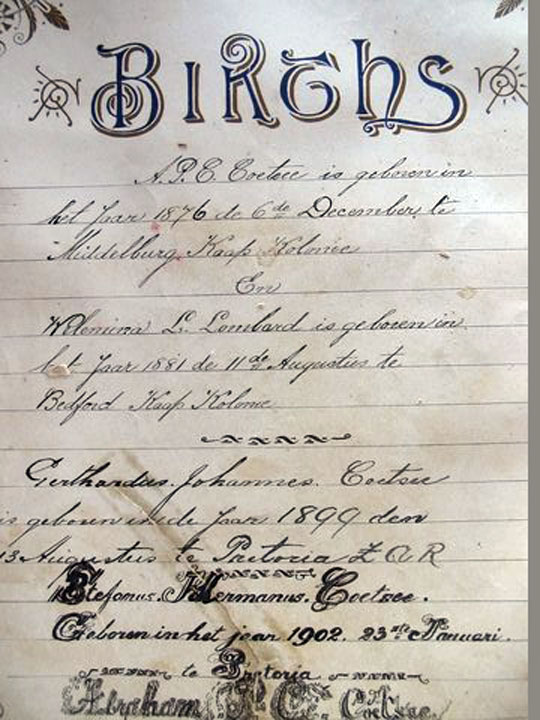 Births
A.P.C. Coetzee is geboren in
het Jaar 1876 de 6de December te
Middelburg Kaap Kolonie
En
L. Lombard is geboren in
het Jaar 1881 de 11de Augustus te
Bedford Kaap Kolonie
Gerthardus. Johannes. Coetzee
is geboren in de Jaar 1899 den
13 Augustus te Pretoria Z A R
Stefanus. Hermanus. Coetzee.
Geboren in het jaar 1902. 23ste Januari.
te Pretoria
Abraham P. C. Coetzee.